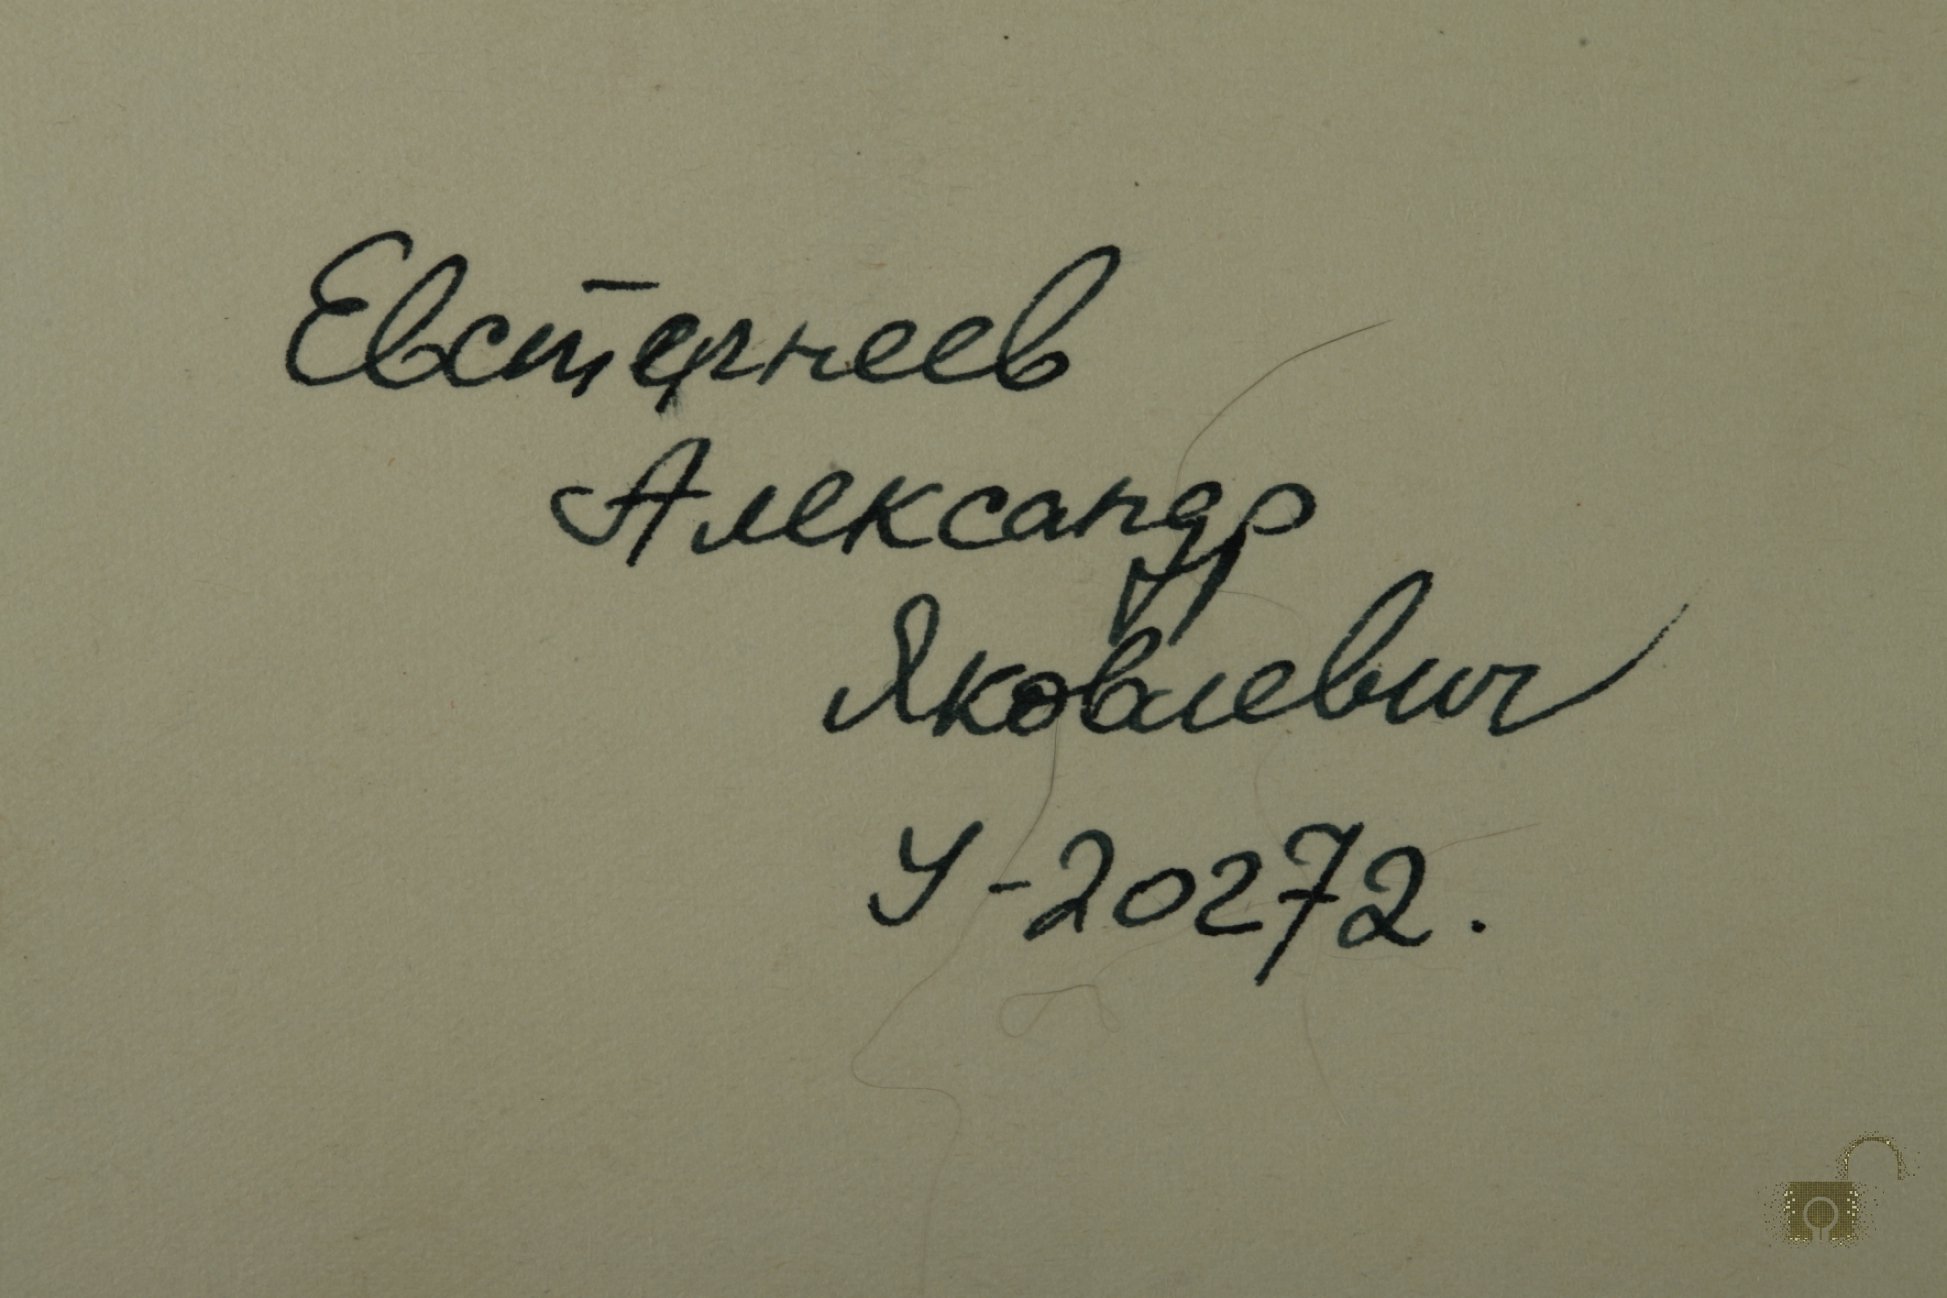 Евстегнеев
Александр
Яковлевич
У-20272.